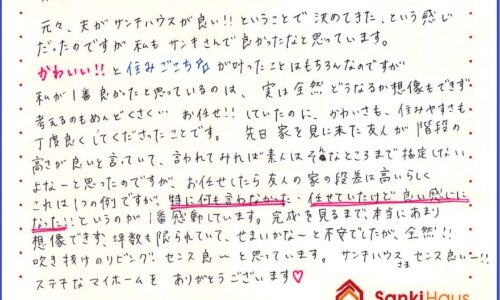 元々、夫がサンキハウスが良い!!ということで決めてきた、という感じ
だったのですが私もサンキさんで良かったなと思っています。
かわいい!!と住みごこちが叶ったことはもちろんなのですが
私が1番良かったと思っているのは、実は全然どうなるか想像もできず
考えるのもめんどくさく…お任せ!!していたのに、かわいさも、住みやすさも
丁度良くしてくださったことです。先日家を見に来た友人が階段の
高さが良いと言っていて、言われてみれば素人はそんなところまで指定しない
よなーと思ったのですが、お任せしたら友人の家の段差は高いらしく
これは1つの例ですが、特に何も言わなかった・任せていたけど良い感じに
なった!!というのが1番感動しています。完成を見るまで、本当にあまり
想像できず、坪数も限られていて、せまいかなーと不安でしたが、全然!!
吹き抜けのリビング、センス良いーと思っています。サンキハウスさまセンス良いー!!
ステキなマイホームをありがとうございます♡
SankiHaus